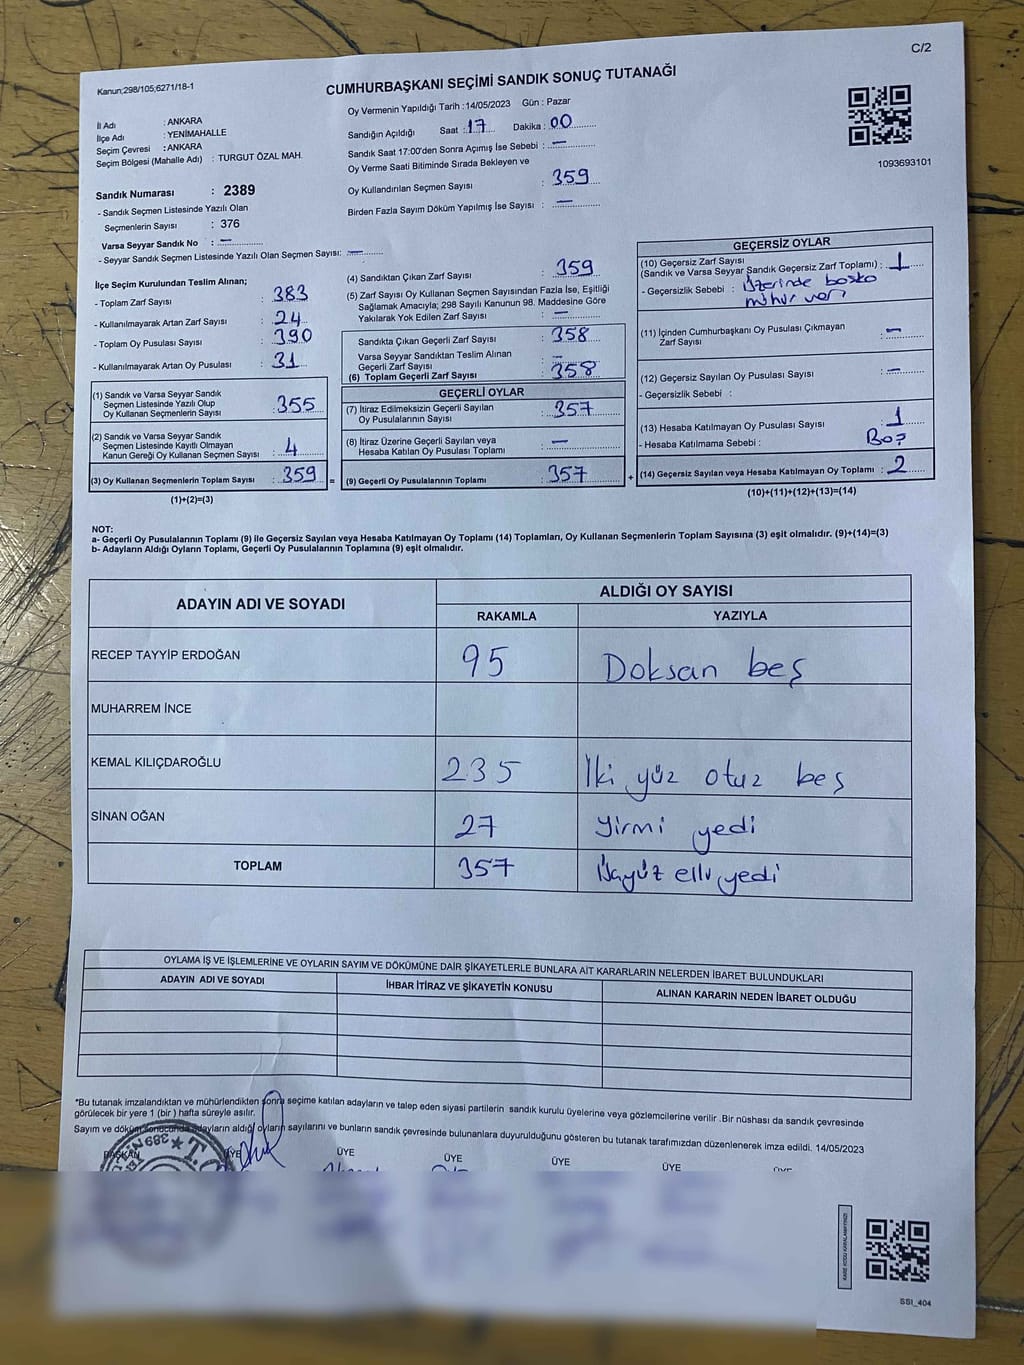 C/2
Kanun;298/105;6271/18-1
CUMHURBAŞKANI SEÇİMİ SANDIK SONUÇ TUTANAĞI
İl Adı : ANKARA
İlçe Adı : YENİMAHALLE
Seçim Çevresi : ANKARA
Seçim Bölgesi (Mahalle Adı) : TURGUT ÖZAL MAH.
Sandık Numarası : 2389
- Sandık Seçmen Listesinde Yazılı Olan
Seçmenlerin Sayısı : 376
Varsa Seyyar Sandık No : —
- Seyyar Sandık Seçmen Listesinde Yazılı Olan Seçmen Sayısı: —
Oy Vermenin Yapıldığı Tarih : 14/05/2023 Gün : Pazar
Sandığın Açıldığı Saat : 17 Dakika : 00
Sandık Saat 17:00'den Sonra Açımış İse Sebebi : —
Oy Verme Saati Bitiminde Sırada Bekleyen ve
Oy Kullandırılan Seçmen Sayısı : 359
Birden Fazla Sayım Döküm Yapılmış İse Sayısı : —
1093693101
İlçe Seçim Kurulundan Teslim Alınan;
- Toplam Zarf Sayısı : 383
- Kullanılmayarak Artan Zarf Sayısı : 24
- Toplam Oy Pusulası Sayısı : 390
- Kullanılmayarak Artan Oy Pusulası : 31
(1) Sandık ve Varsa Seyyar Sandık
Seçmen Listesinde Yazılı Olup
Oy Kullanan Seçmenlerin Sayısı : 355
(2) Sandık ve Varsa Seyyar Sandık
Seçmen Listesinde Kayıtlı Olmayan
Kanun Gereği Oy Kullanan Seçmen Sayısı : 4
(3) Oy Kullanan Seçmenlerin Toplam Sayısı : 359 =
(1)+(2)=(3)
(4) Sandıktan Çıkan Zarf Sayısı : 359
(5) Zarf Sayısı Oy Kullanan Seçmen Sayısından Fazla İse, Eşitliği
Sağlamak Amacıyla; 298 Sayılı Kanunun 98. Maddesine Göre
Yakılarak Yok Edilen Zarf Sayısı : —
Sandıkta Çıkan Geçerli Zarf Sayısı : 358
Varsa Seyyar Sandıktan Teslim Alınan
Geçerli Zarf Sayısı : —
(6) Toplam Geçerli Zarf Sayısı : 358
GEÇERLİ OYLAR
(7) İtiraz Edilmeksizin Geçerli Sayılan
Oy Pusulalarının Sayısı : 357
(8) İtiraz Üzerine Geçerli Sayılan veya
Hesaba Katılan Oy Pusulası Toplamı : —
(9) Geçerli Oy Pusulalarının Toplamı : 357 +
GEÇERSİZ OYLAR
(10) Geçersiz Zarf Sayısı
(Sandık ve Varsa Seyyar Sandık Geçersiz Zarf Toplamı) : 1
- Geçersizlik Sebebi : Üzerinde başka
mühür var
(11) İçinden Cumhurbaşkanı Oy Pusulası Çıkmayan
Zarf Sayısı : —
(12) Geçersiz Sayılan Oy Pusulası Sayısı : —
- Geçersizlik Sebebi :
(13) Hesaba Katılmayan Oy Pusulası Sayısı : 1
- Hesaba Katılmama Sebebi : Boş
(14) Geçersiz Sayılan veya Hesaba Katılmayan Oy Toplamı : 2
(10)+(11)+(12)+(13)=(14)
NOT:
a- Geçerli Oy Pusulalarının Toplamı (9) ile Geçersiz Sayılan veya Hesaba Katılmayan Oy Toplamı (14) Toplamları, Oy Kullanan Seçmenlerin Toplam Sayısına (3) eşit olmalıdır. (9)+(14)=(3)
b- Adayların Aldığı Oyların Toplamı, Geçerli Oy Pusulalarının Toplamına (9) eşit olmalıdır.
ADAYIN ADI VE SOYADI
ALDIĞI OY SAYISI
RAKAMLA YAZIYLA
RECEP TAYYİP ERDOĞAN 95 Doksan beş
MUHARREM İNCE
KEMAL KILIÇDAROĞLU 235 İki yüz otuz beş
SİNAN OĞAN 27 yirmi yedi
TOPLAM 357 Üçyüz elli yedi
OYLAMA İŞ VE İŞLEMLERİNE VE OYLARIN SAYIM VE DÖKÜMÜNE DAİR ŞİKAYETLERLE BUNLARA AİT KARARLARIN NELERDEN İBARET BULUNDUKLARI
ADAYIN ADI VE SOYADI İHBAR İTİRAZ VE ŞİKAYETİN KONUSU ALINAN KARARIN NEDEN İBARET OLDUĞU
*Bu tutanak imzalandıktan ve mühürlendikten sonra seçime katılan adayların ve talep eden siyasi partilerin sandık kurulu üyelerine veya gözlemcilerine verilir .Bir nüshası da sandık çevresinde
görülecek bir yere 1 (bir ) hafta süreyle asılır.
Sayım ve döküm sonucunda adayların aldığı oyların sayılarını ve bunların sandık çevresinde bulunanlara duyurulduğunu gösteren bu tutanak tarafımızdan düzenlenerek imza edildi. 14/05/2023
BAŞKAN ÜYE ÜYE ÜYE ÜYE ÜYE ÜYE
SSI_404